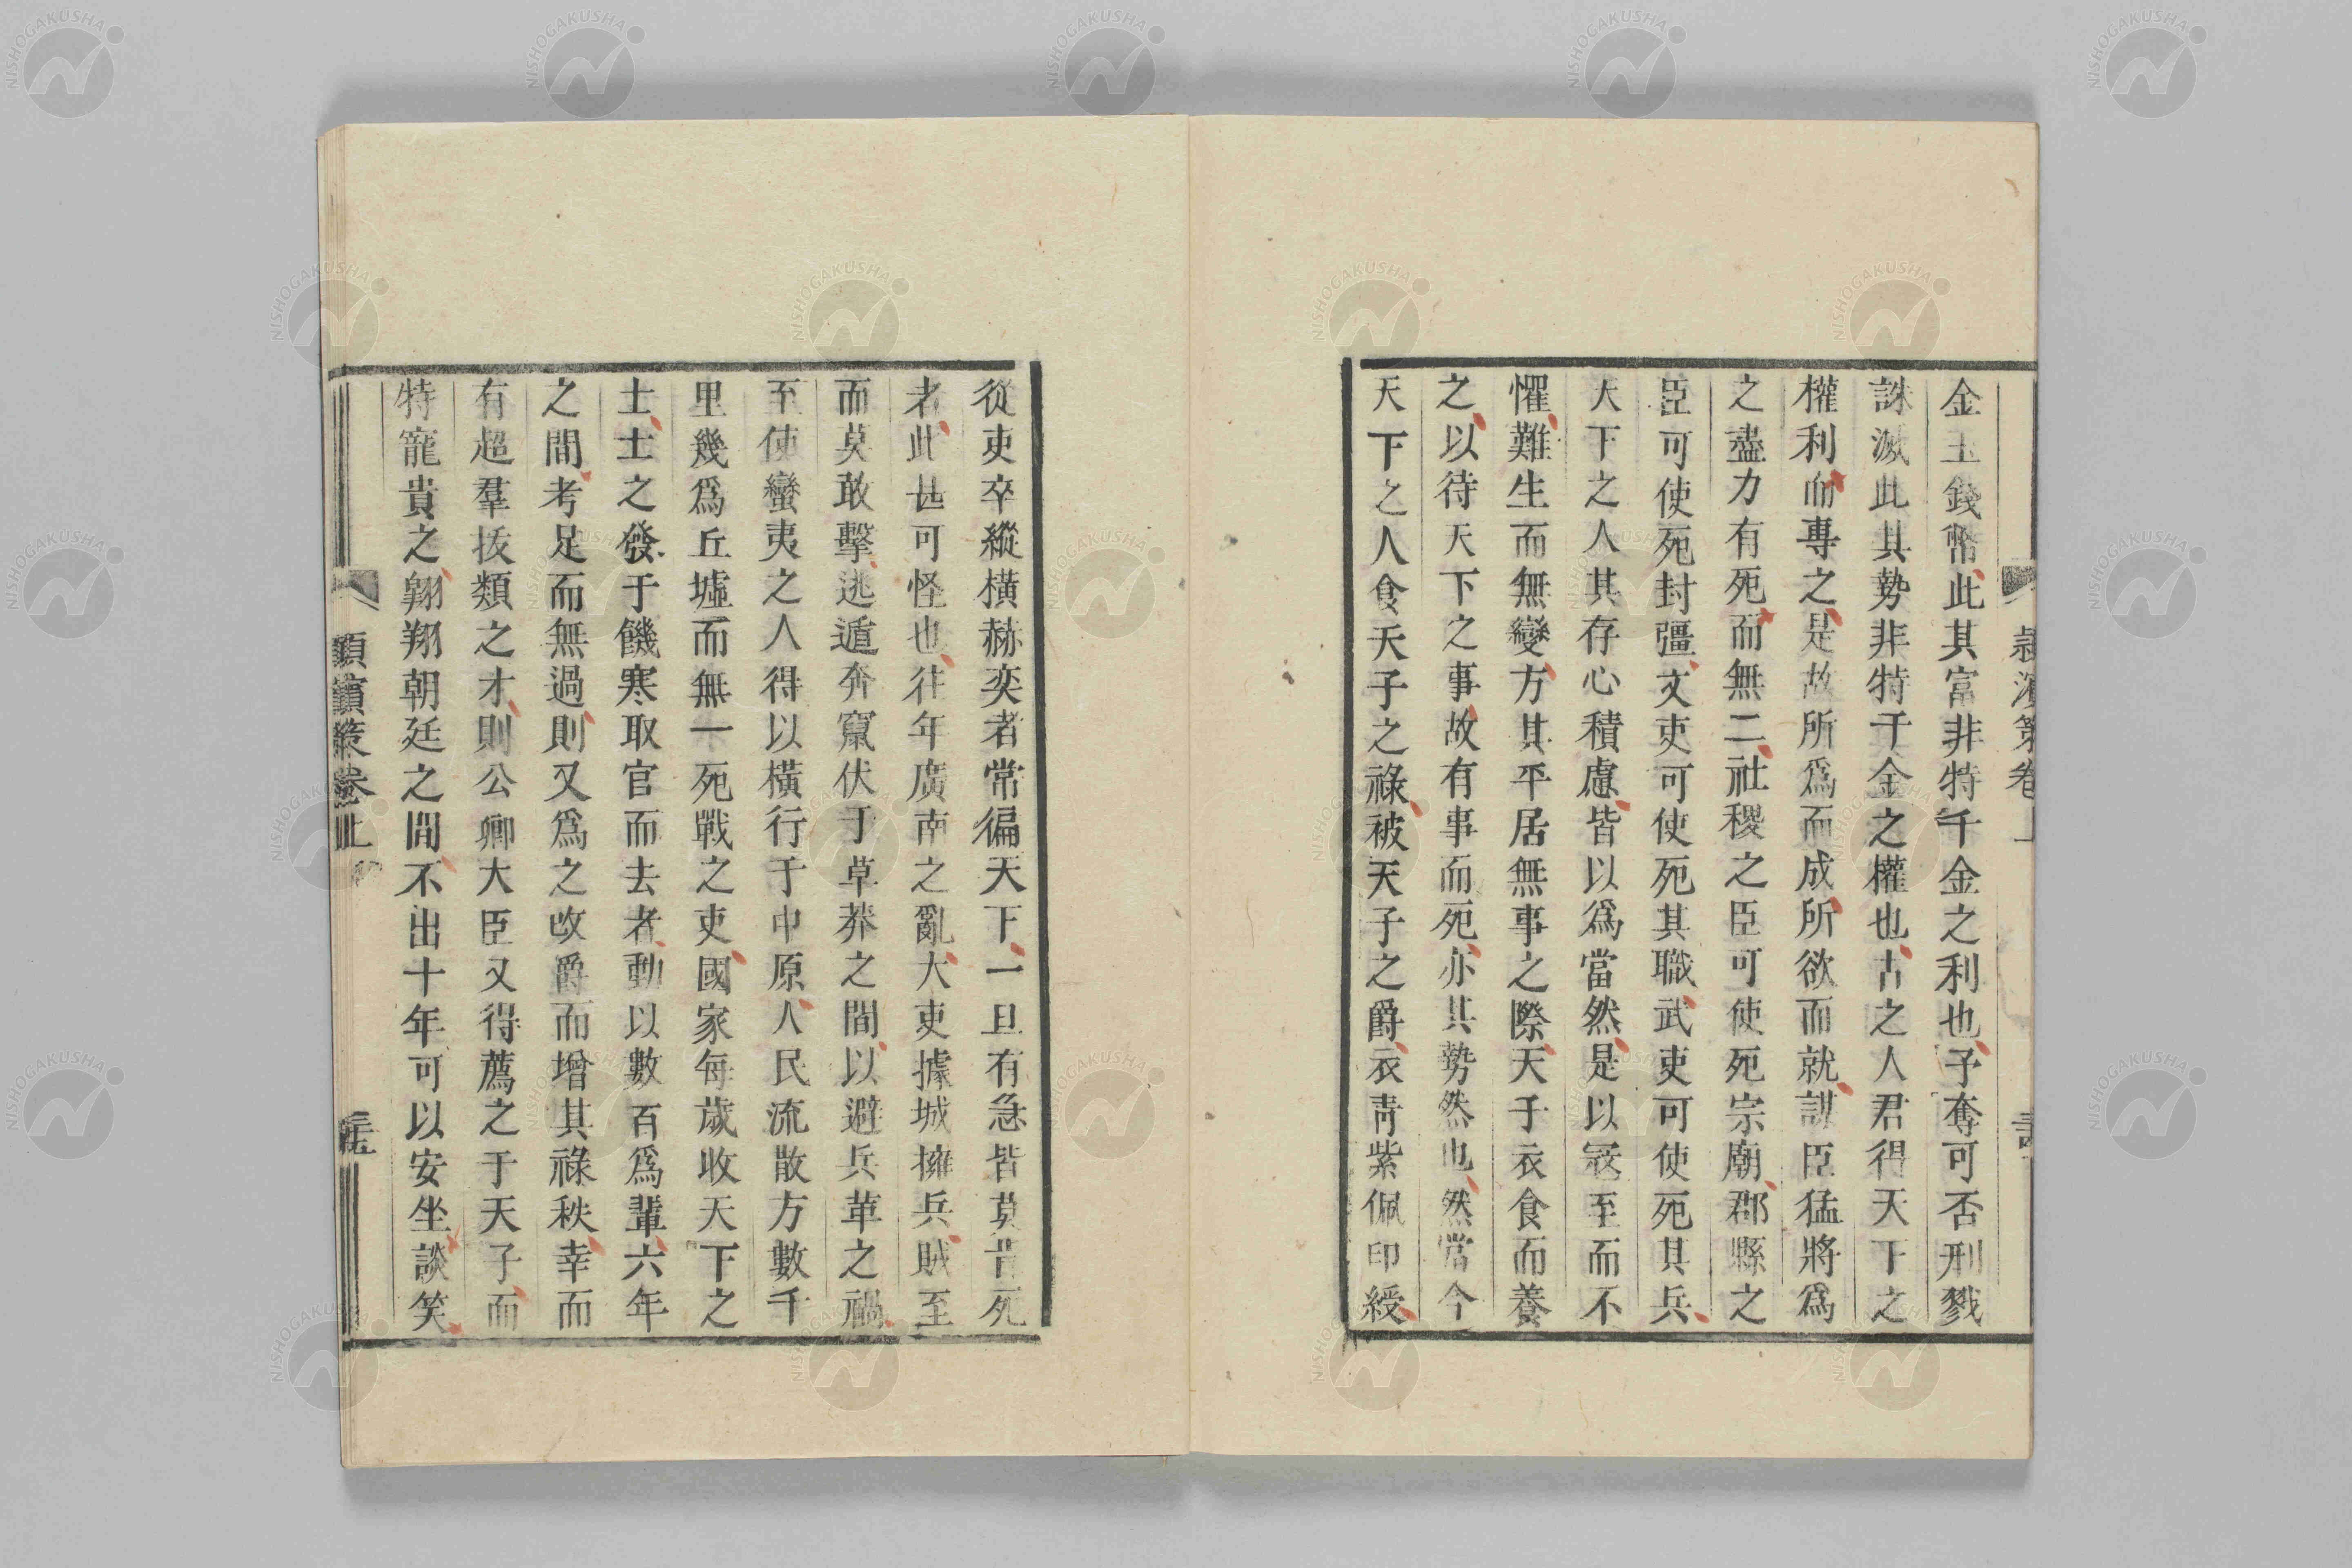 金玉錢幣此其富非特千金之利也予奪可否刑戮
誅滅此其勢非特千金之權也古之人君得天下之
權利而專之是故所爲而成所欲而就謀臣猛將爲
之盡力有死而無二社稷之臣可使死宗廟郡縣之
臣可使死封彊文吏可使死其職武吏可使死其兵
天下之人其存心積慮皆以爲當然是以寇至而不
懼難生而無變方其平居無事之際天子衣食而養
之以待天下之事故有事而死亦其勢然也然當今
天下之人食天子之祿被天子之爵衣靑紫佩印綬
從吏卒縱橫赫奕者常徧天下一旦有急皆莫肯死
者此甚可怪也往年廣南之亂大吏據城擁兵賊至
而莫敢擊逃遁奔竄伏于草莽之間以避兵革之禍
至使蠻夷之人得以橫行于中原人民流散方數千
里幾爲丘墟而無一死戰之吏國家每歲收天下之
士士之發于饑寒取官而去者動以數百爲輩六年
之間考足而無過則又爲之改爵而增其祿秩幸而
有超羣拔類之才則公卿大臣又得薦之于天子而
特寵貴之翺翔朝廷之間不出十年可以安坐談笑
潁濱策卷上
NISHOGAKUSHA